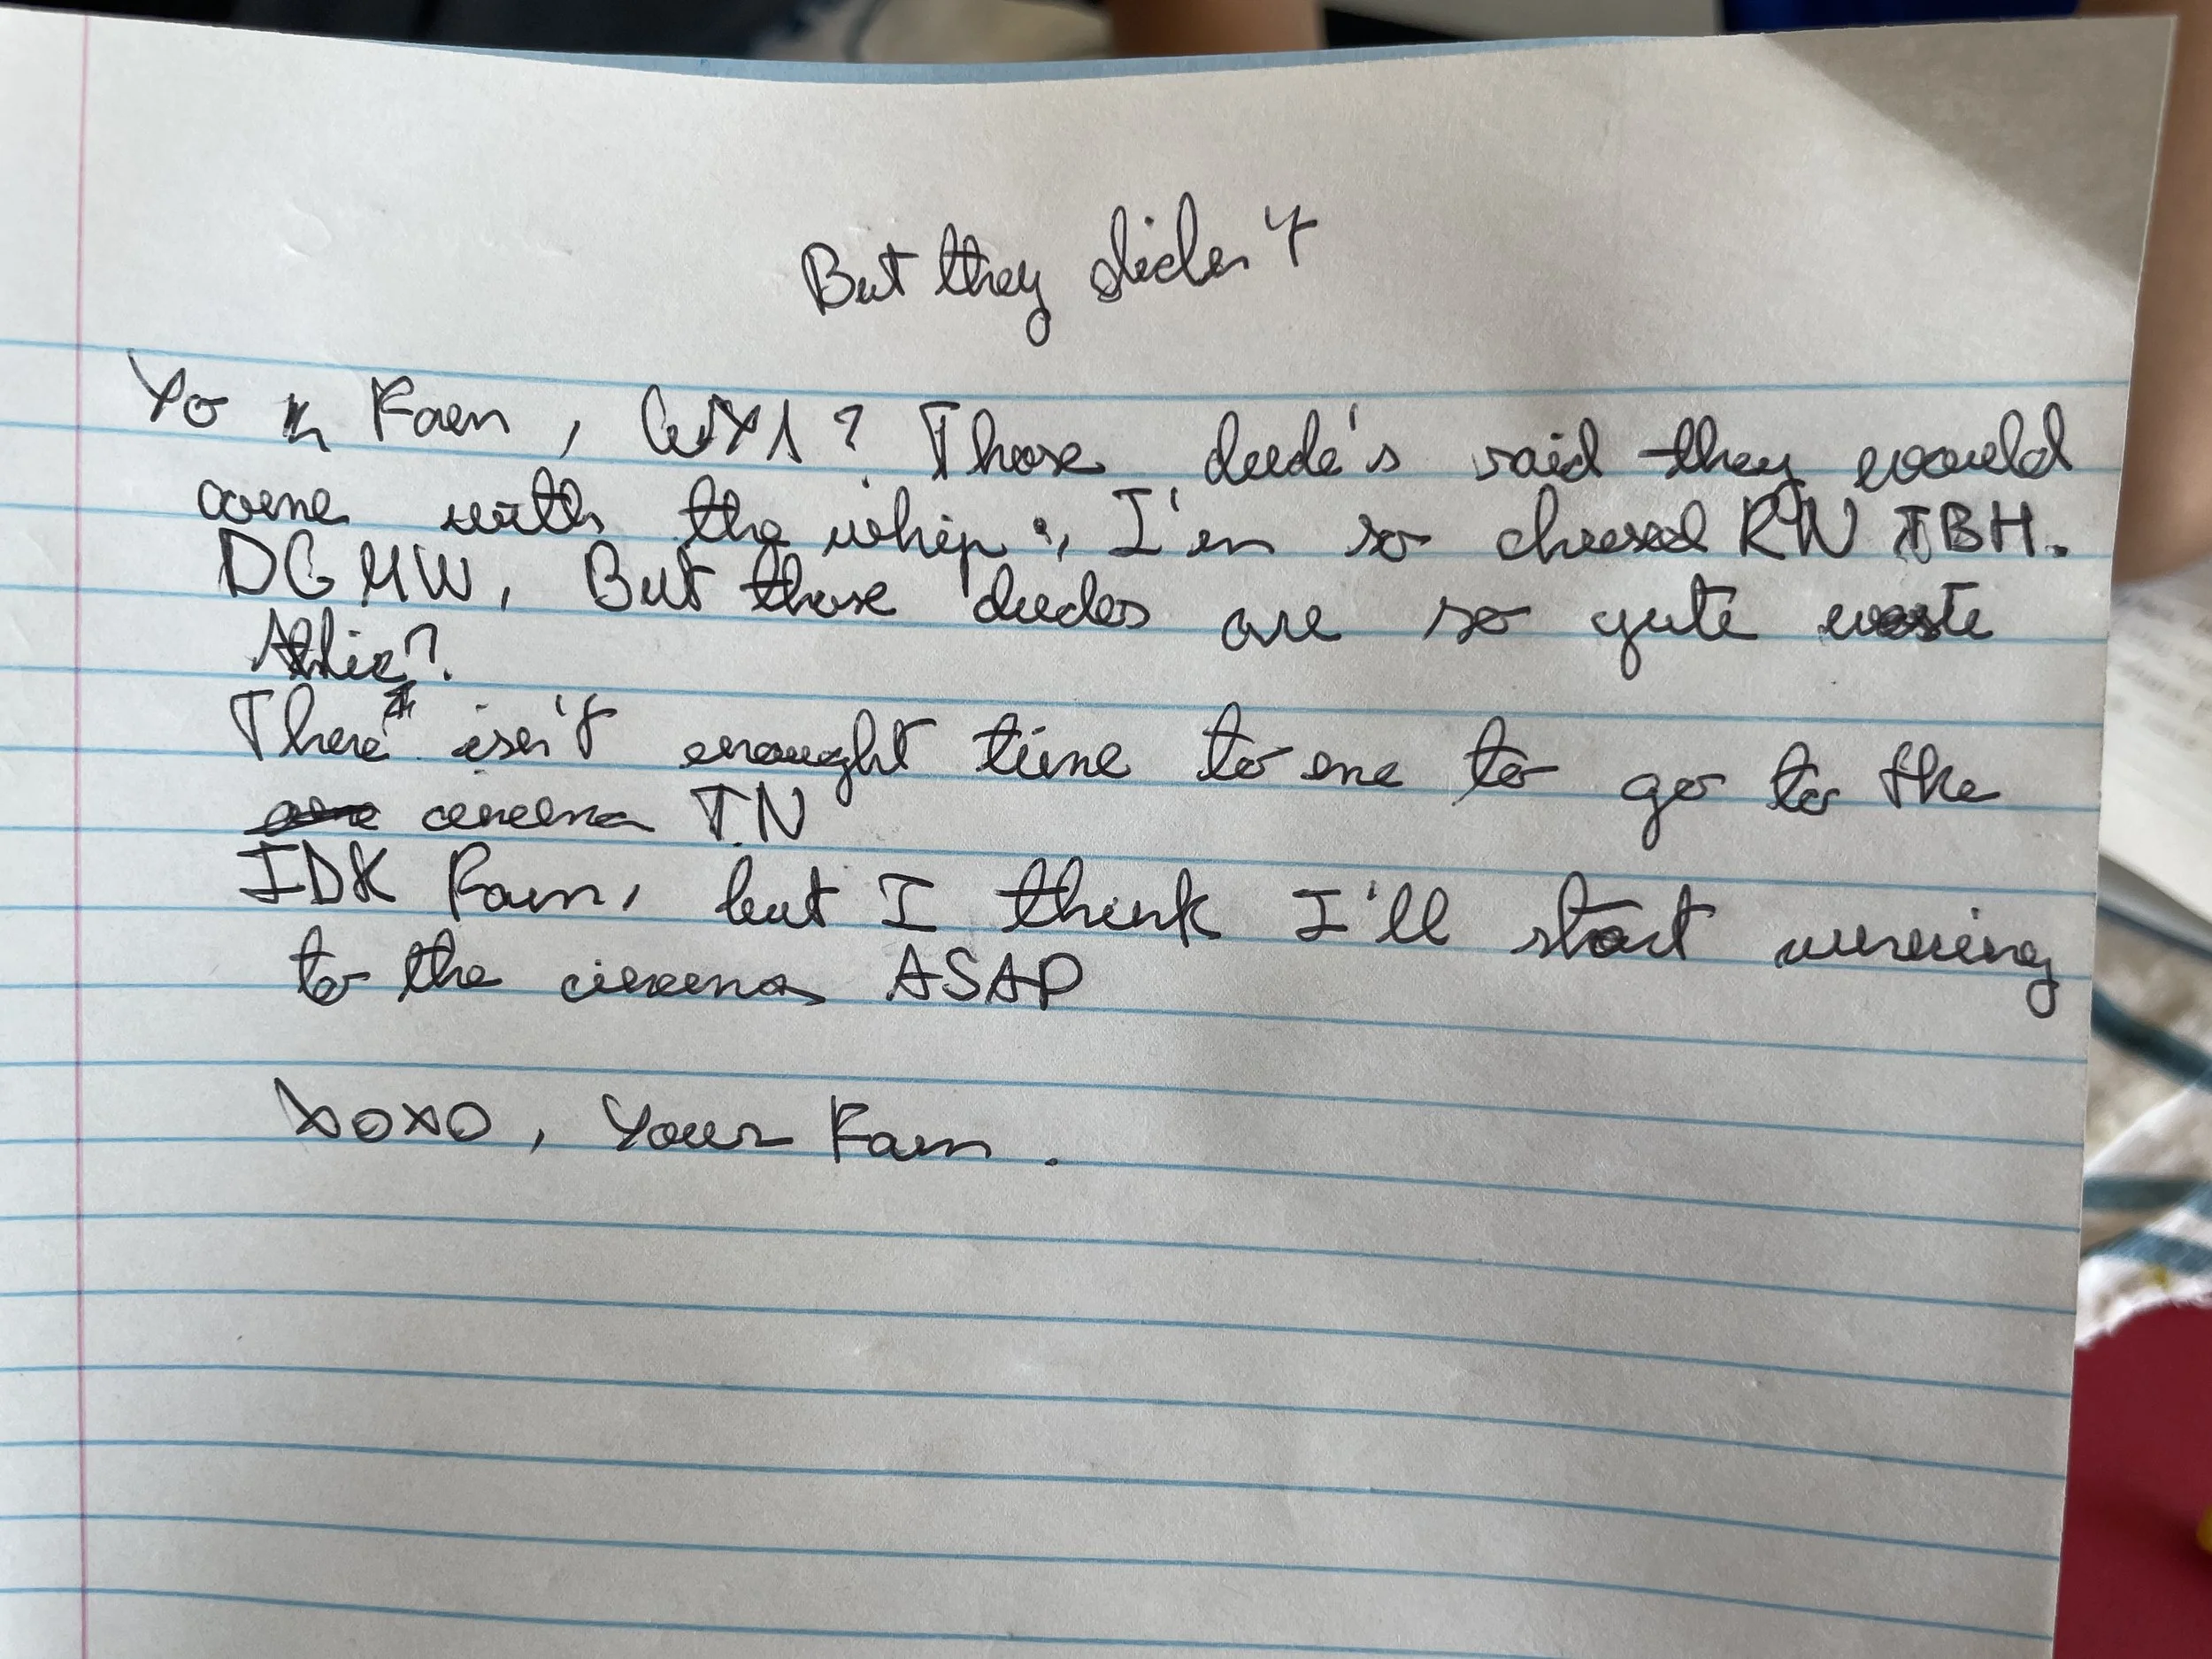 But they didn't
Yo Fam, WYA? Those dude's said they would
come with the whip, I'm so cheesed RN TBH.
DGMW, But those dudes are so yute waste
There isn't enought time to me to go to the
cinema TN
IDK Fam, but I think I'll start running
to the cinema ASAP
XOXO, Your Fam.